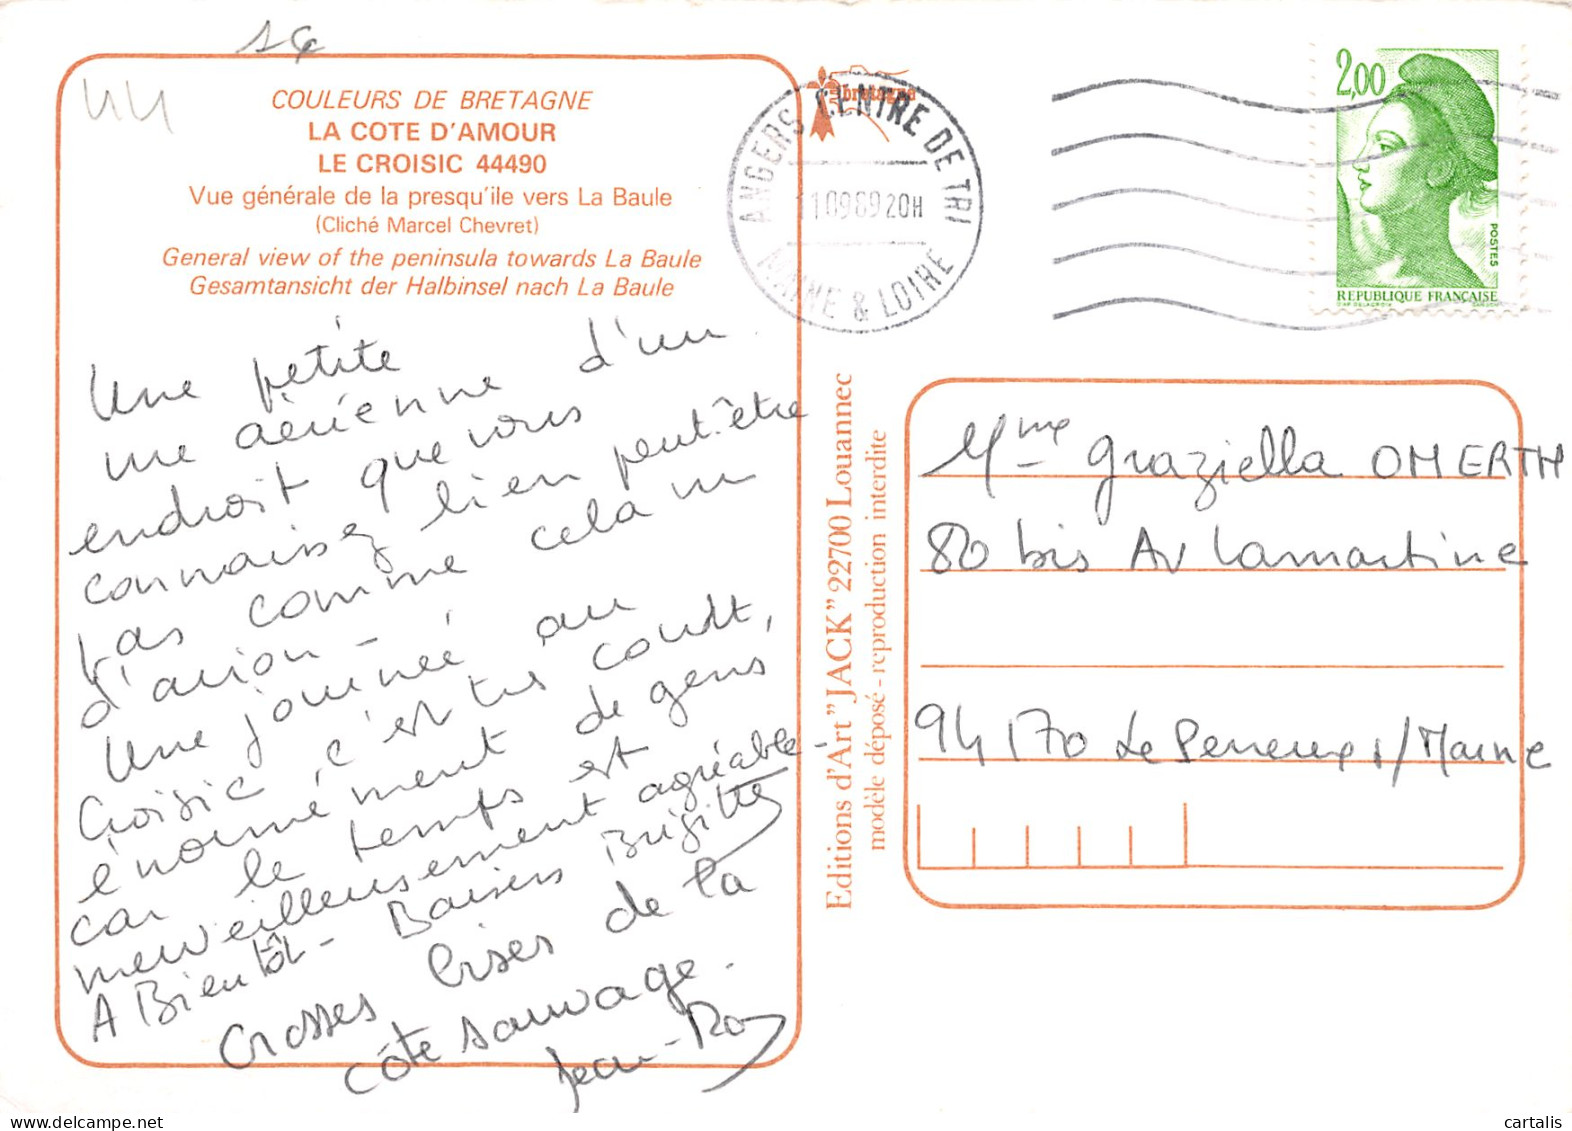 1€
44
COULEURS DE BRETAGNE
LA COTE D'AMOUR
LE CROISIC 44490
Vue générale de la presqu'ile vers La Baule
(Cliché Marcel Chevret)
General view of the peninsula towards La Baule
Gesamtansicht der Halbinsel nach La Baule
Une petite
vue aérienne d'un
endroit que vous
connaissez bien peut-être
pas comme cela vu
d'avion -
Une journée au
Croisic c'est très court,
énormément de gens
car le temps est
merveilleusement agréable -
A Bientôt - Baisers Brigitte
Grosses bises de la
côte sauvage.
Jean-
bretagne
ANGERS CENTRE DE TRI
11 09 89 20H
MAINE & LOIRE
2,00
POSTES
REPUBLIQUE FRANÇAISE
D'AP. DELACROIX GANDON
Editions d'Art "JACK" 22700 Louannec
modèle déposé - reproduction interdite
Mme Graziella OMERTH
80 bis Av Lamartine
94170 Le Perreux s/Marne
cartalis